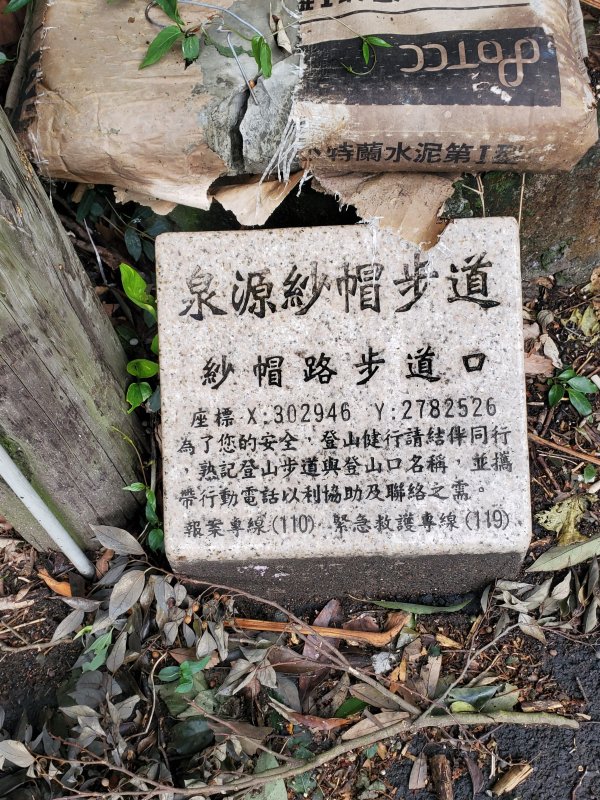 TCC
卜特蘭水泥第I型
泉源紗帽步道
紗帽路步道口
座標 X:302946 Y:2782526
為了您的安全，登山健行請結伴同行
，熟記登山步道與登山口名稱，並攜
帶行動電話以利協助及聯絡之需。
報案專線(110) 緊急救護專線(119)